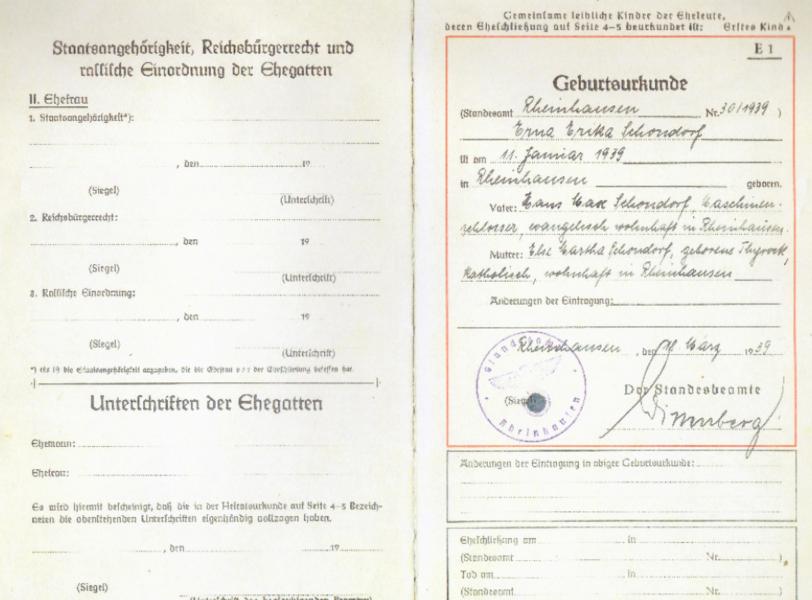 Staatsangehörigkeit, Reichsbürgerrecht und
rassische Einordnung der Ehegatten
II. Ehefrau
1. Staatsangehörigkeit*):
, den 19
(Siegel)
(Unterschrift)
2. Reichsbürgerrecht:
, den 19
(Siegel)
(Unterschrift)
3. Rassische Einordnung:
, den 19
(Siegel)
(Unterschrift)
*) Es ist die Staatsangehörigkeit anzugeben, die die Ehefrau vor der Eheschließung besessen hat.
Unterschriften der Ehegatten
Ehemann:
Ehefrau:
Es wird hiermit bescheinigt, daß die in der Heiratsurkunde auf Seite 4-5 Bezeich-
neten die obenstehenden Unterschriften eigenhändig vollzogen haben.
, den 19
(Siegel)
Gemeinsame leibliche Kinder der Eheleute,
deren Eheschließung auf Seite 4-5 beurkundet ist: Erstes Kind
E 1
Geburtsurkunde
(Standesamt Rheinhausen Nr. 30/1939 )
Erna Erika Schondorf
ist am 11. Januar 1939
in Rheinhausen geboren.
Vater: Hans Max Schondorf, Maschinen-
schlosser, evangelisch wohnhaft in Rheinhausen.
Mutter: Else Martha Schondorf, geborene Thyrock,
katholisch, wohnhaft in Rheinhausen
Änderungen der Eintragung:
Rheinhausen, den März 1939
Standesamt
Rheinhausen
(Siegel)
Der Standesbeamte
Änderungen der Eintragung in obiger Geburtsurkunde:
Eheschließung am in
(Standesamt Nr. )
Tod am in
(Standesamt Nr.